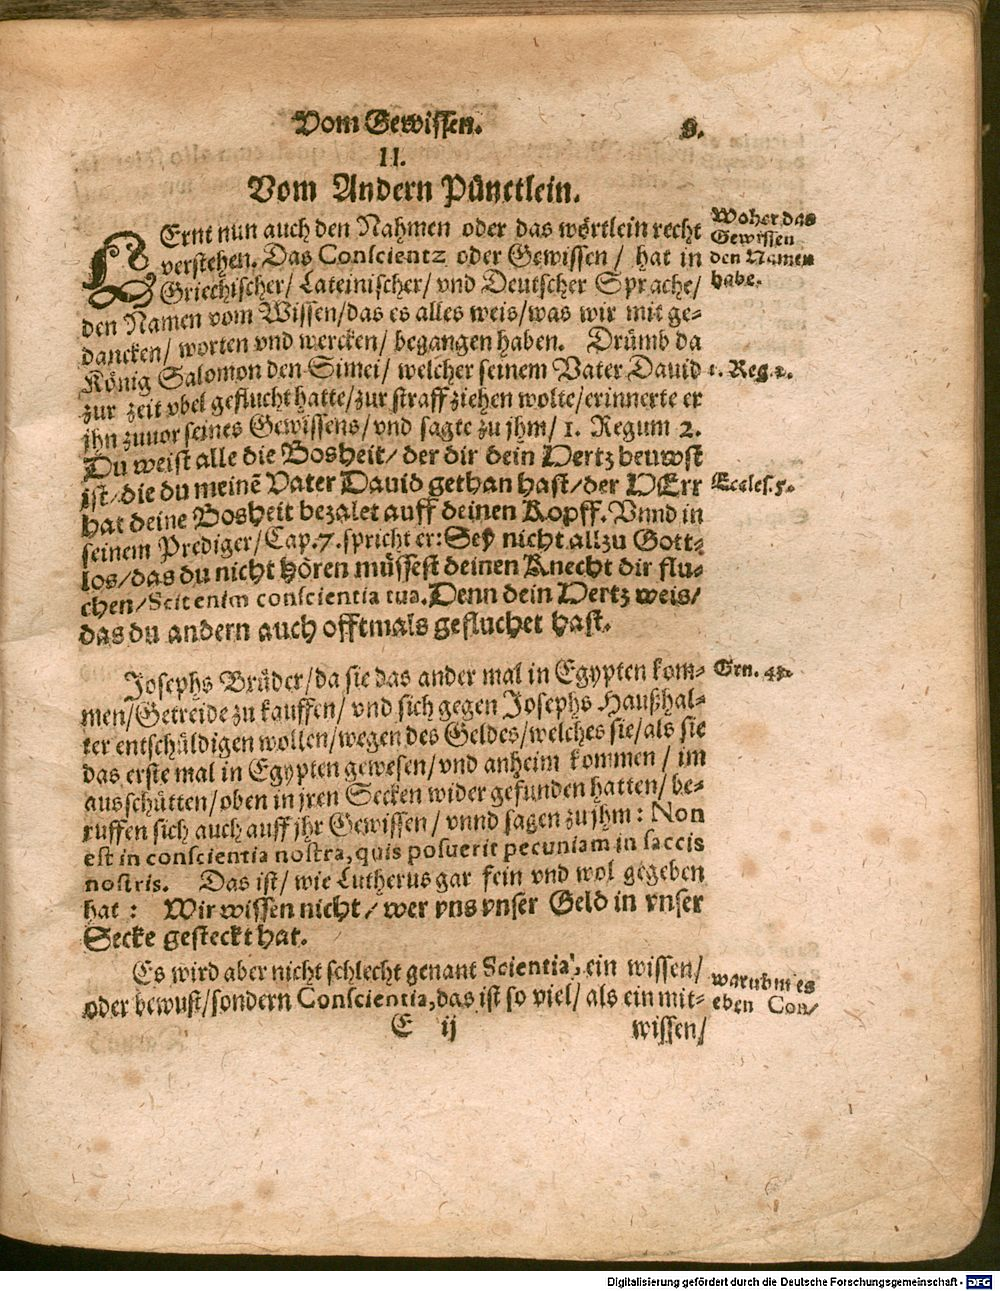 Vom Gewissen. 8.
II.
Vom Andern Pünctlein.
LErnt nun auch den Nahmen oder das wörtlein recht
verstehen. Das Conscientz oder Gewissen / hat in
Griechischer/ Lateinischer/ vnd Deutscher Sprache/
den Namen vom Wissen/das es alles weis/was wir mit ge-
dancken/ worten vnd wercken/ begangen haben. Drümb da
König Salomon den Simei/ welcher seinem Vater Dauid
zur zeit vbel geflucht hatte/zur straff ziehen wolte/erinnerte er
jhn zuuor seines Gewissens/vnd sagte zu jhm/ 1. Regum 2.
Du weist alle die Bosheit/ der dir dein Hertz bewust
ist/die du meinē Vater Dauid gethan hast/der HErr
hat deine Bosheit bezalet auff deinen Kopff. Vnnd in
seinem Prediger/Cap.7.spricht er: Sey nicht allzu Gott-
los/das du nicht hören müssest deinen Knecht dir flu-
chen/Scit enim conscientia tua. Denn dein Hertz weis/
das du andern auch offtmals gefluchet hast.
Woher das
Gewissen
den Namen
habe.
1. Reg. 2.
Eccles. 7.
Josephs Brüder/da sie das ander mal in Egypten kom-
men/Getreide zu kauffen/ vnd sich gegen Josephs Haußhal-
ter entschüldigen wollen/wegen des Geldes/welches sie/als sie
das erste mal in Egypten gewesen/vnd anheim kommen / im
ausschütten/oben in jren Secken wider gefunden hatten/ be-
ruffen sich auch auff jhr Gewissen / vnnd sagen zu jhm: Non
est in conscientia nostra, quis posuerit pecuniam in saccis
nostris. Das ist/ wie Lutherus gar fein vnd wol gegeben
hat: Wir wissen nicht/ wer vns vnser Geld in vnser
Secke gesteckt hat.
Gen. 43.
Es wird aber nicht schlecht genant Scientia, ein wissen/
oder bewust/sondern Conscientia, das ist so viel/ als ein mit-
warumb es
eben Con/
E ij wissen/
Digitalisierung gefördert durch die Deutsche Forschungsgemeinschaft - DFG